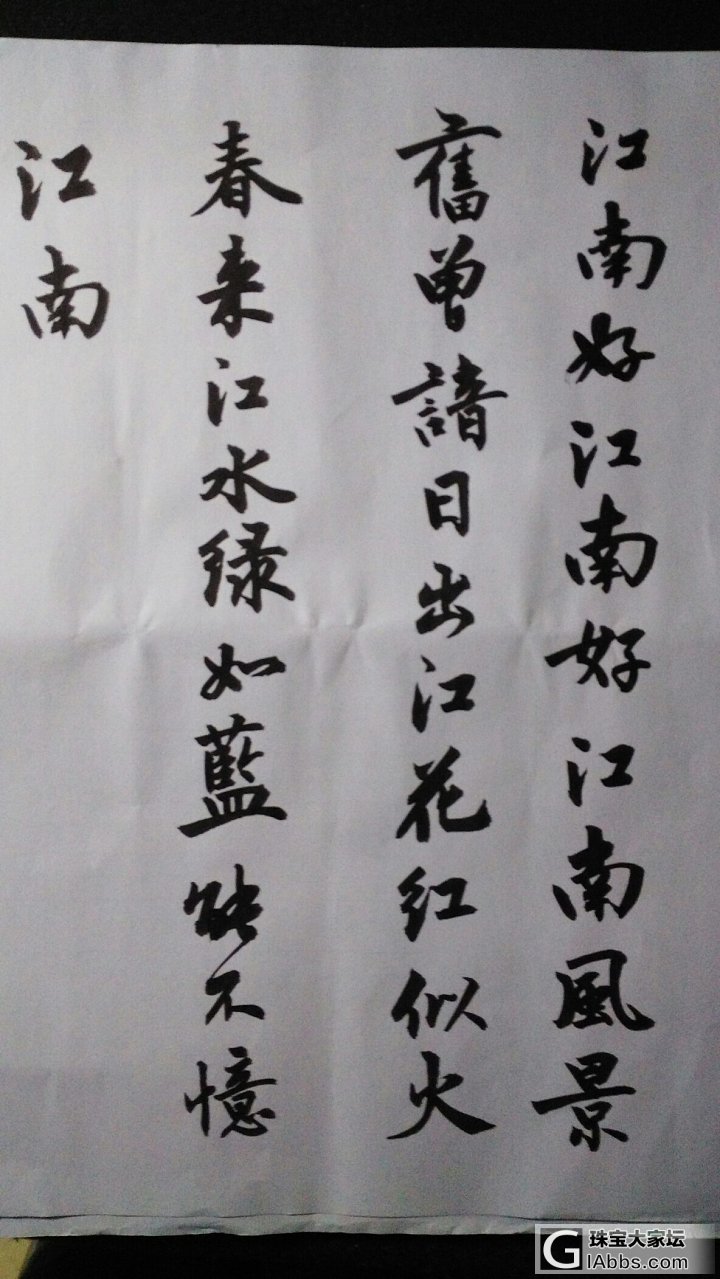 江南好江南好江南風景
舊曽諳日出江花红似火
春来江水绿如藍能不憶
江南
珠宝大家坛
GIAbbs.com